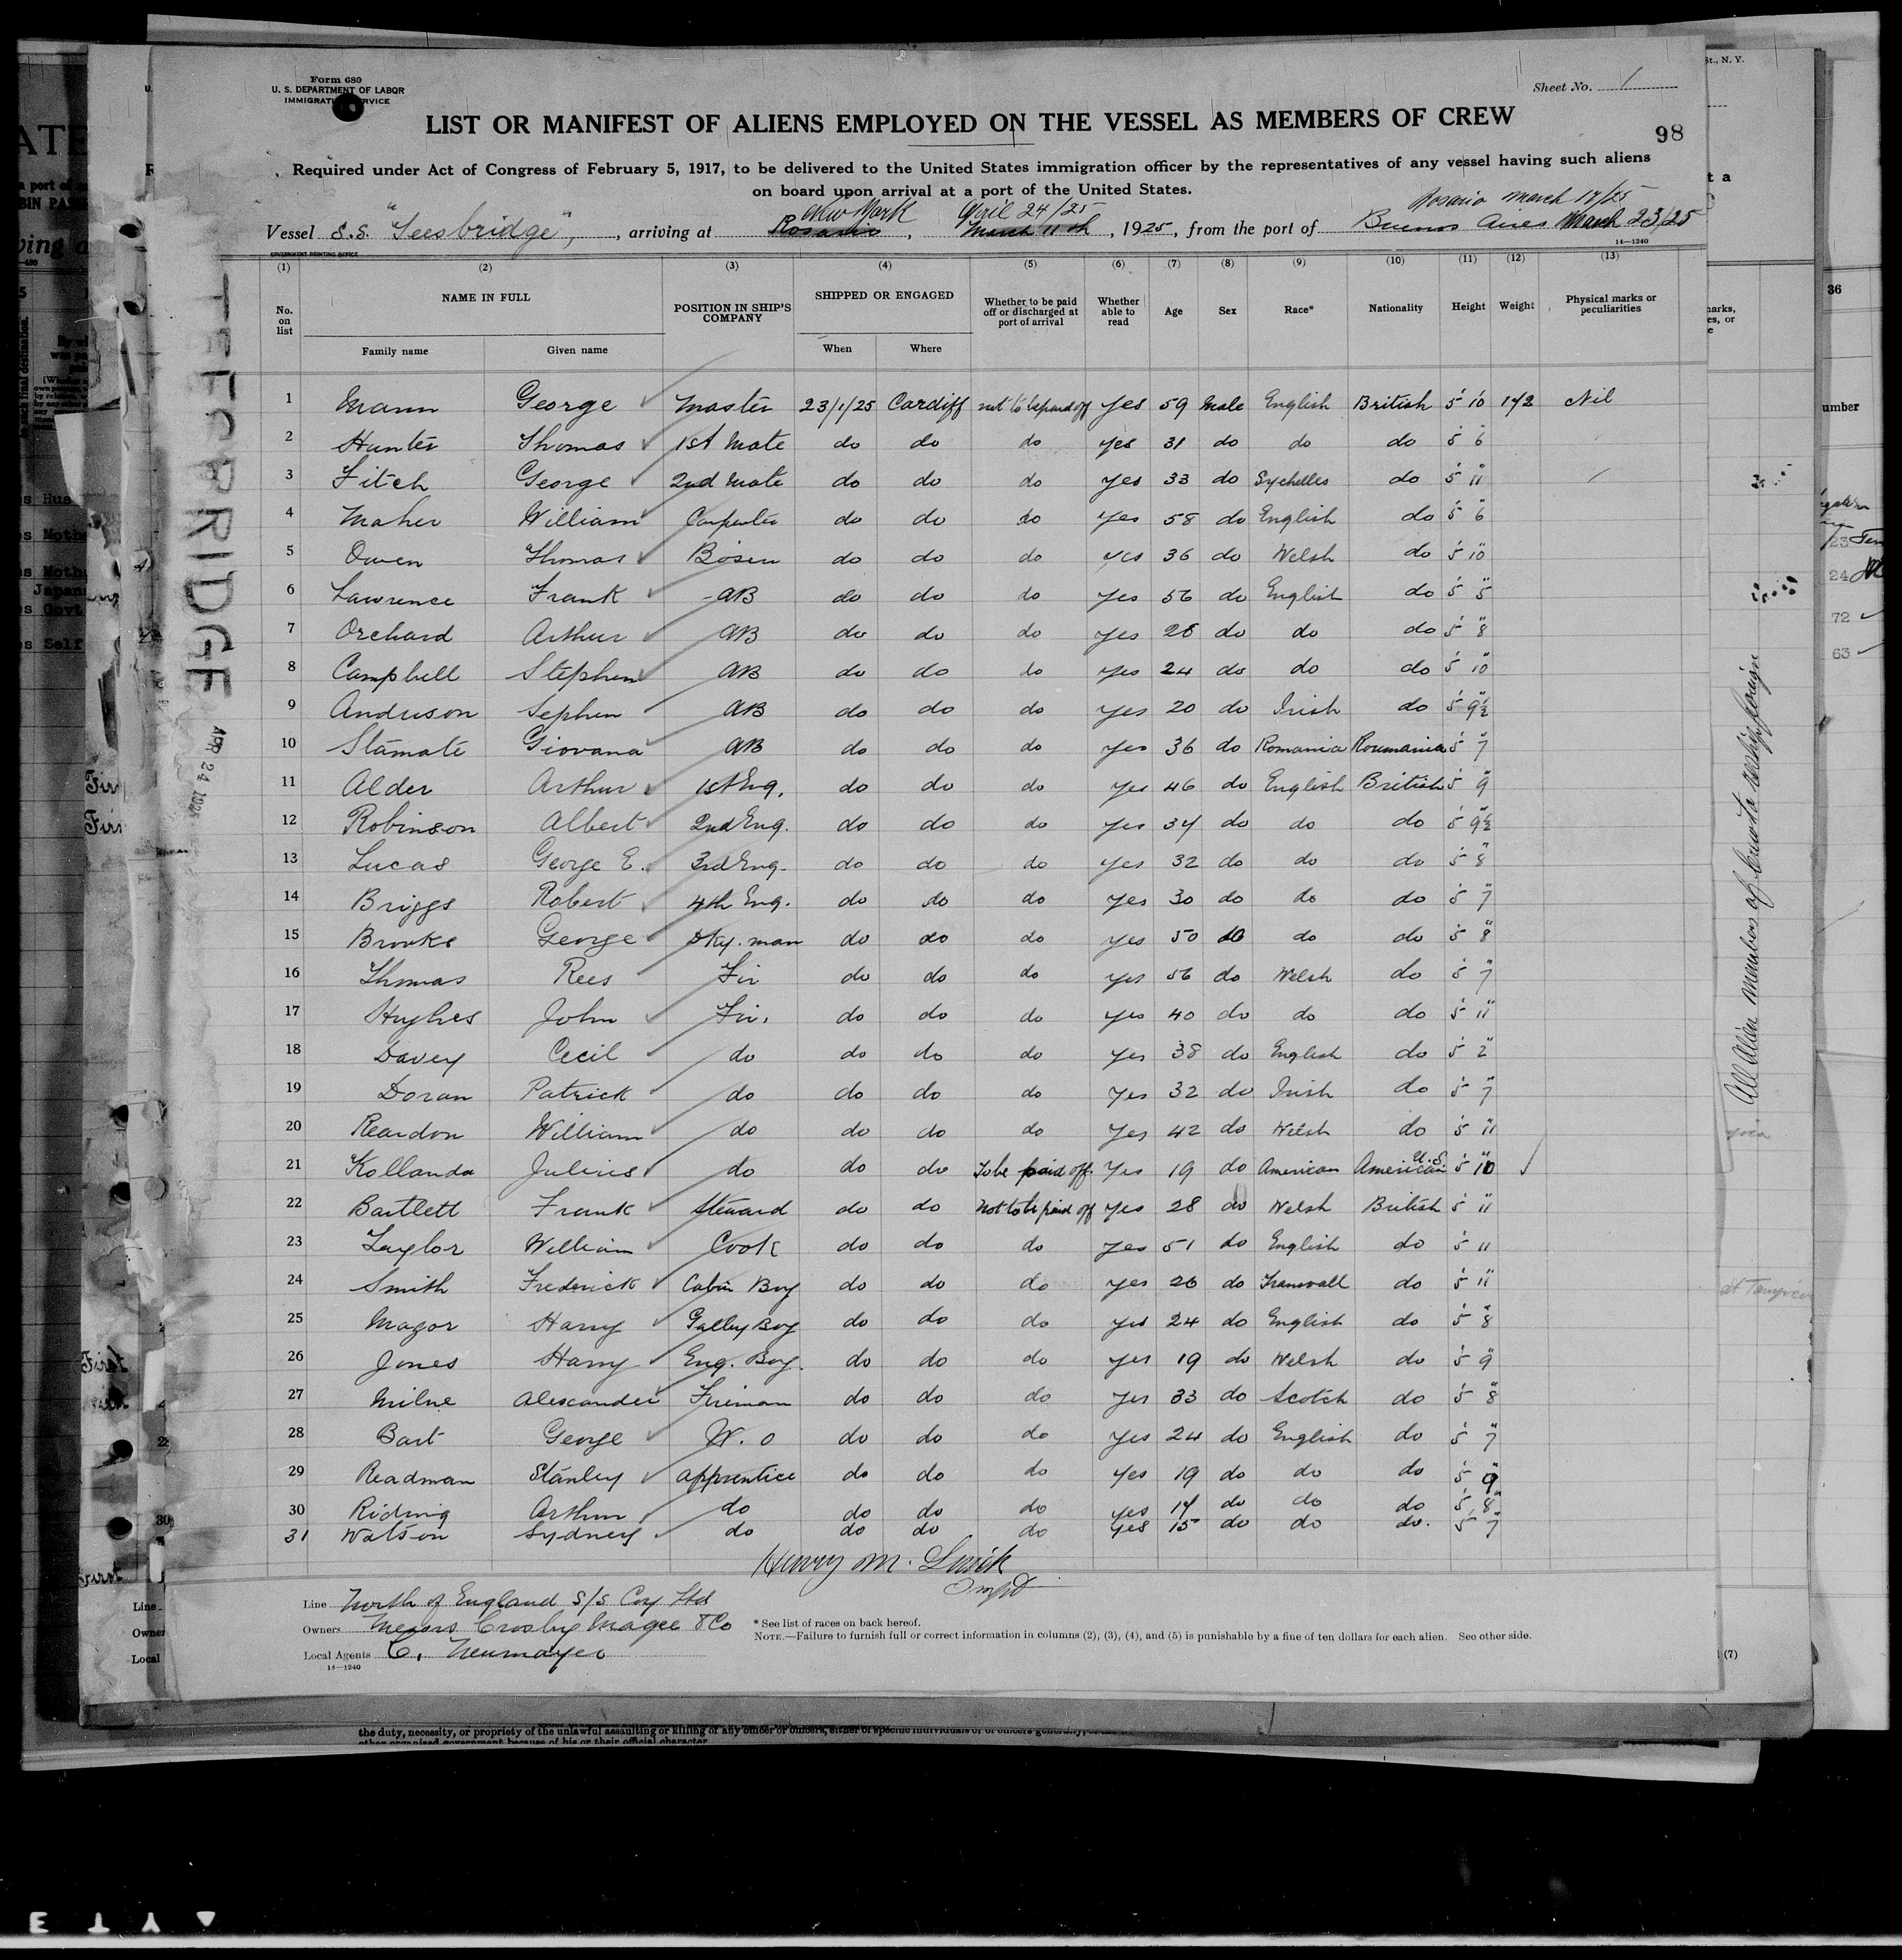 Form 680
U. S. DEPARTMENT OF LABOR
IMMIGRATION SERVICE
Sheet No. 1
LIST OR MANIFEST OF ALIENS EMPLOYED ON THE VESSEL AS MEMBERS OF CREW
98
Required under Act of Congress of February 5, 1917, to be delivered to the United States immigration officer by the representatives of any vessel having such aliens
on board upon arrival at a port of the United States.
New York April 24/25 Rosario March 17/25
Vessel S.S. "Teesbridge", arriving at Rosario, March 11th, 1925, from the port of Buenos Aires March 23/25
GOVERNMENT PRINTING OFFICE
14—1240
(1) (2) (3) (4) (5) (6) (7) (8) (9) (10) (11) (12) (13)
No. on list NAME IN FULL POSITION IN SHIP'S COMPANY SHIPPED OR ENGAGED Whether to be paid off or discharged at port of arrival Whether able to read Age Sex Race* Nationality Height Weight Physical marks or peculiarities
Family name Given name When Where
1 Mann George Master 23/1/25 Cardiff not to be paid off yes 59 Male English British 5' 10 142 Nil
2 Hunter Thomas 1st Mate do do do yes 31 do do do 5' 6"
3 Fitch George 2nd Mate do do do yes 33 do Sychelles do 5' 11"
4 Maher William Carpenter do do do yes 58 do English do 5' 6"
5 Owen Thomas Bosen do do do yes 36 do Welsh do 5' 10"
6 Lawrence Frank AB do do do yes 56 do English do 5' 5"
7 Orchard Arthur AB do do do yes 28 do do do 5' 8"
8 Campbell Stephen AB do do do yes 24 do do do 5' 10"
9 Anderson Sephen AB do do do yes 20 do Irish do 5' 9½"
10 Stamate Giovana AB do do do yes 36 do Romania Roumania 5' 7"
11 Alder Arthur 1st Eng. do do do yes 46 do English British 5' 9"
12 Robinson Albert 2nd Eng. do do do yes 34 do do do 5' 9½"
13 Lucas George E. 3rd Eng. do do do yes 32 do do do 5' 8"
14 Briggs Robert 4th Eng. do do do yes 30 do do do 5' 7"
15 Brooks George Dky. man do do do yes 50 do do do 5' 8"
16 Thomas Rees Fir do do do yes 56 do Welsh do 5' 7"
17 Hughes John Fir. do do do yes 40 do do do 5' 11"
18 Davey Cecil do do do do yes 38 do English do 5' 2"
19 Doran Patrick do do do do yes 32 do Irish do 5' 7"
20 Reardon William do do do do yes 42 do Welsh do 5' 11"
21 Kollanda Julius do do do To be paid off yes 19 do American American U.S. 5' 10"
22 Bartlett Frank Steward do do Not to be paid off yes 28 do Welsh British 5' 11"
23 Taylor William Cook do do do yes 51 do English do 5' 11
24 Smith Frederick Cabin Boy do do do yes 26 do Transvall do 5' 11"
25 Magor Harry Galley Boy do do do yes 24 do English do 5' 8"
26 Jones Harry Eng. Boy. do do do yes 19 do Welsh do 5' 9"
27 Milne Alexander Fireman do do do yes 33 do Scotch do 5' 8"
28 Bart George W. O do do do yes 24 do English do 5' 7"
29 Readman Stanley apprentice do do do yes 19 do do do 5' 9"
30 Riding Arthur do do do do yes 17 do do do 5' 8"
31 Watson Sydney do do do do yes 15 do do do. 5' 7"
Henry M.
Line North of England S/S Coy Ltd
Owners Messrs Crosby Magee & Co
Local Agents C. Neumayer
14—1240
* See list of races on back hereof.
NOTE.—Failure to furnish full or correct information in columns (2), (3), (4), and (5) is punishable by a fine of ten dollars for each alien. See other side.
TEESBRIDGE
APR 24 1925
All Alien members of crew to reship foreign
St., N. Y.
36
umber
72
63
First
First
First
Line
Owner
Local
(7)
the duty, necessity, or propriety of the unlawful assaulting or killing of any officer or officers, either of specific individuals or of officers generally,
other organized government because of his or their official character